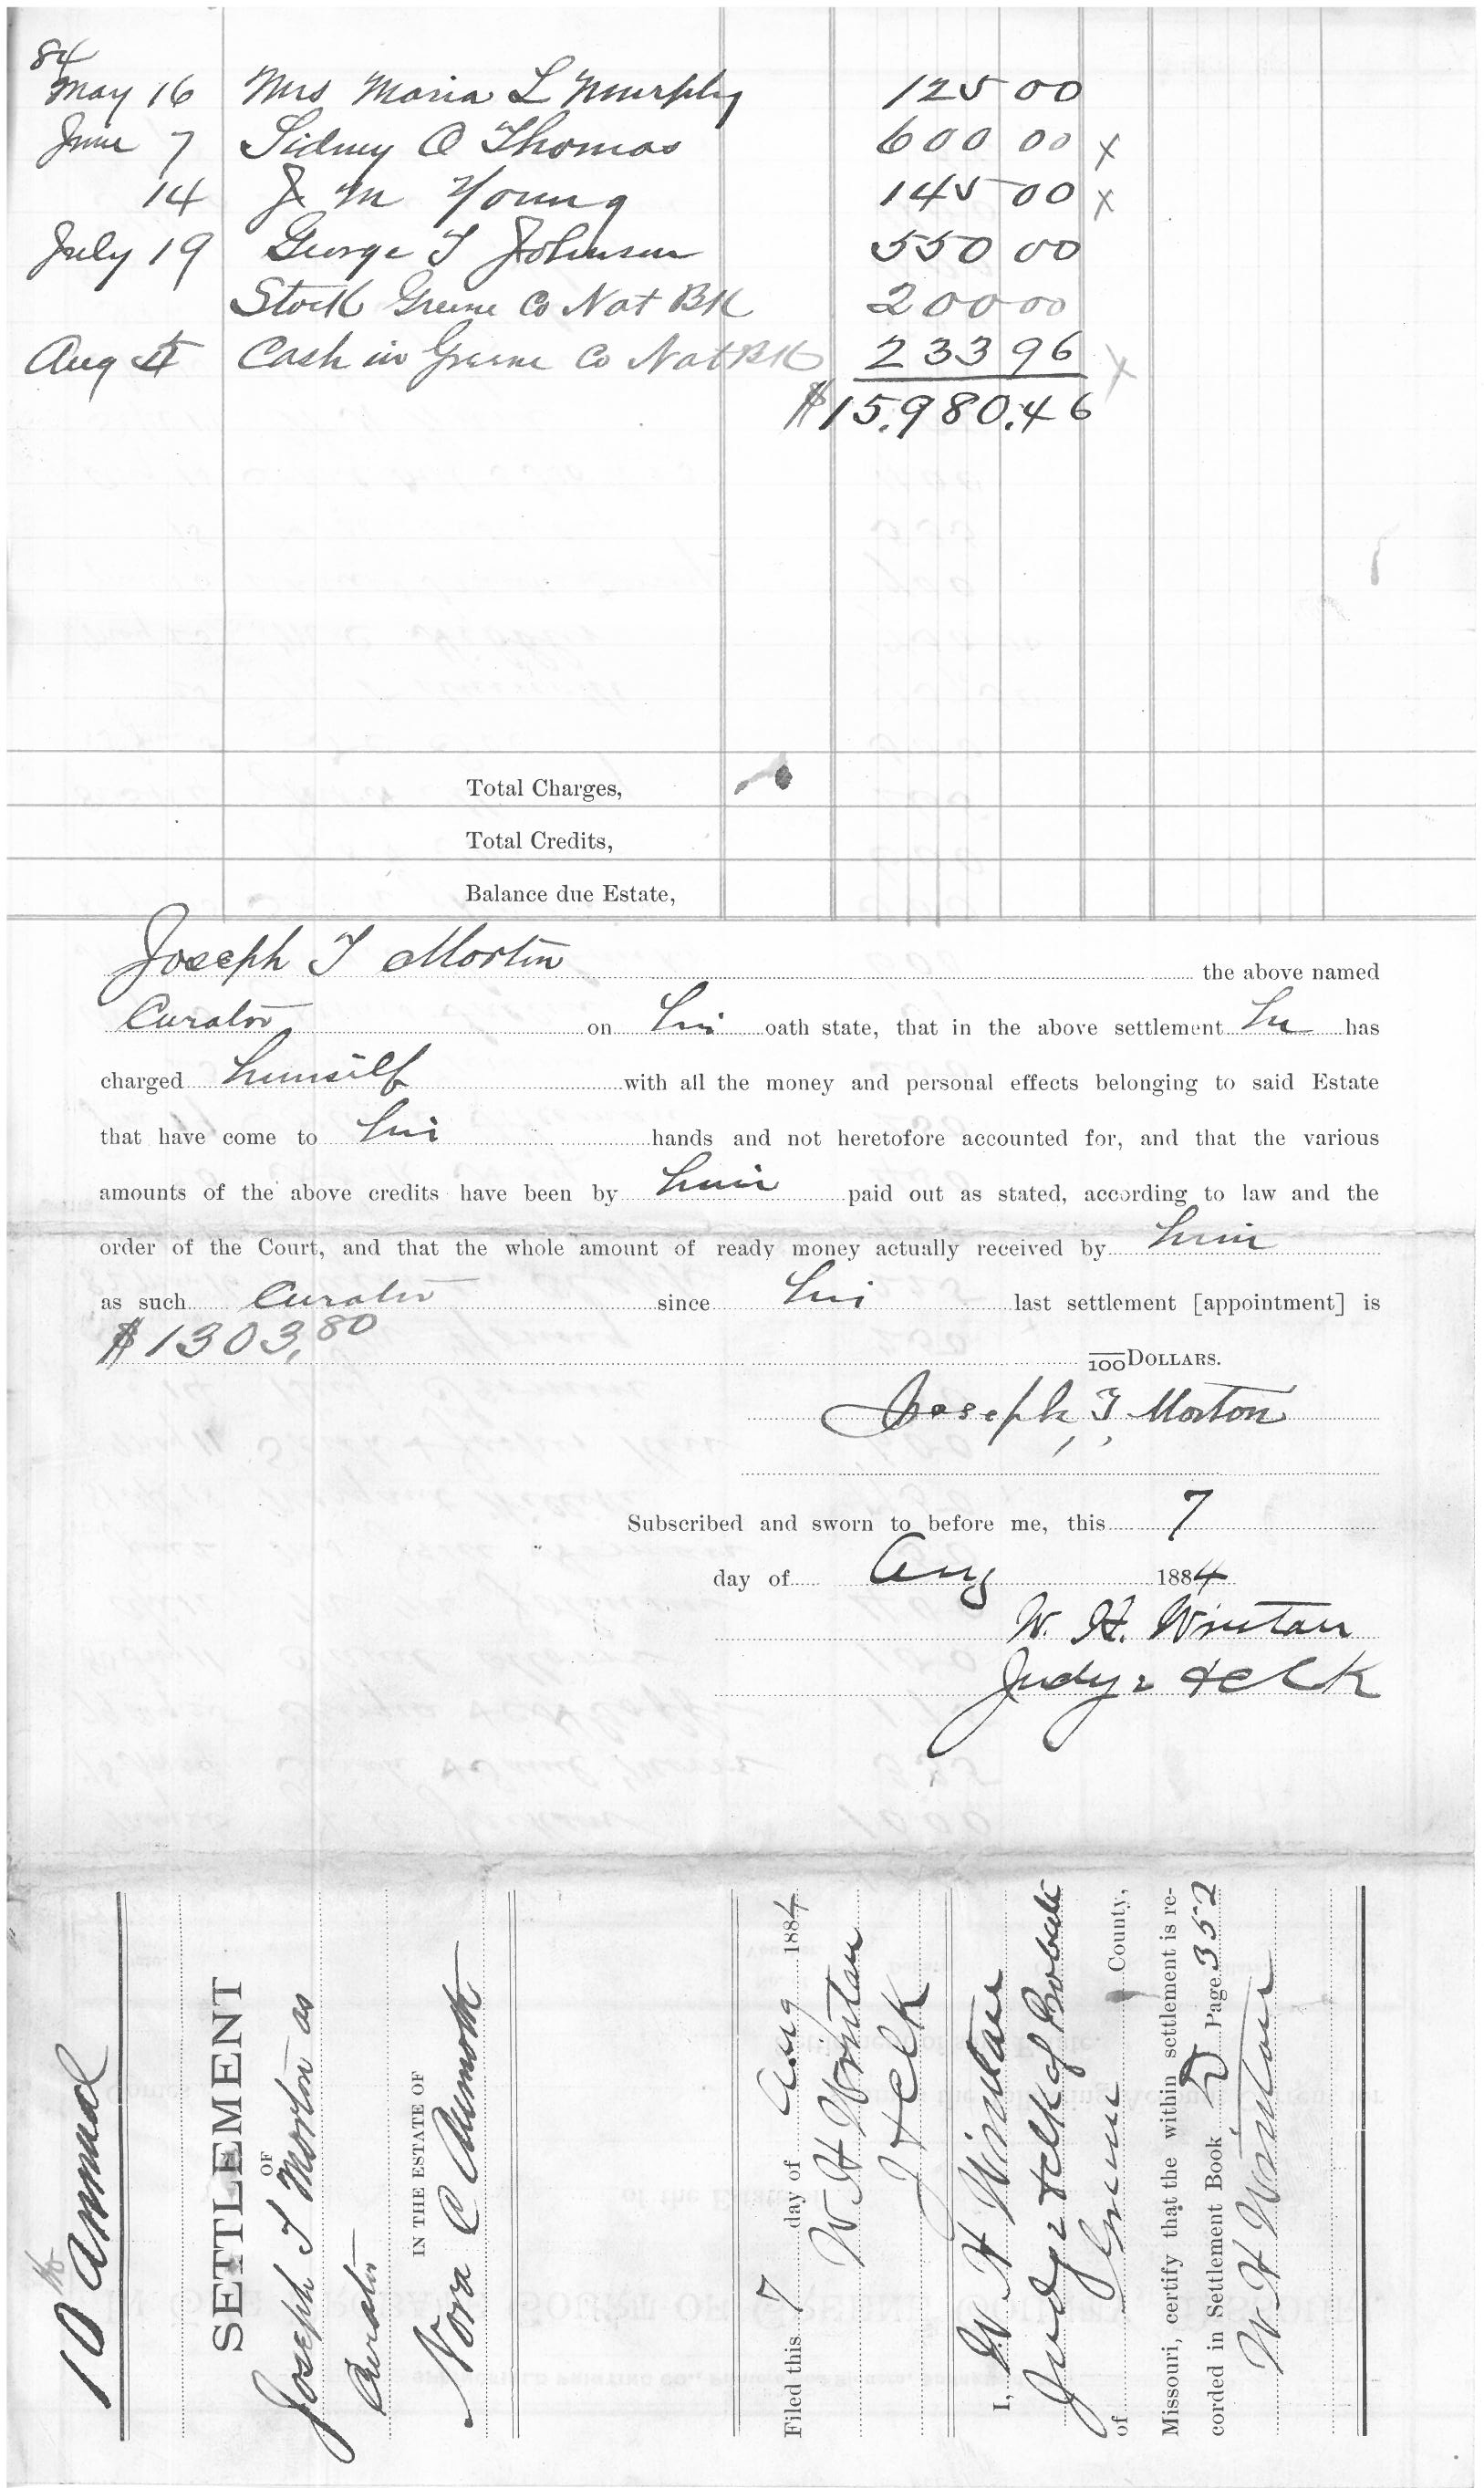 84
May 16 Mrs Maria L Murphy 125 00
June 7 Sidney O Thomas 600 00 x
14 J M Young 145 00 x
July 19 George T Johnson 550 00
Stock Greene Co Nat BK 200 00
Aug Cash in Greene Co Nat BK 233 96 x
$15,980.46
Total Charges,
Total Credits,
Balance due Estate,
Joseph T Morton the above named
Curator on his oath state, that in the above settlement he has
charged himself with all the money and personal effects belonging to said Estate
that have come to his hands and not heretofore accounted for, and that the various
amounts of the above credits have been by him paid out as stated, according to law and the
order of the Court, and that the whole amount of ready money actually received by him
as such Curator since his last settlement [appointment] is
$1303,80
100 DOLLARS.
Joseph, T, Morton
Subscribed and sworn to before me, this 7
day of Aug 1884
W. H. Wintan
Judge & clk
10th annual
SETTLEMENT
OF
Joseph T Morton as
Curator
IN THE ESTATE OF
Nora C
Filed this 7 day of Aug 1884
W H Wintan
J & clk
I, W H Wintan
Judge & clk of Probate
of Greene County,
Missouri, certify that the within settlement is re-
corded in Settlement Book D Page 352
W H Wintan